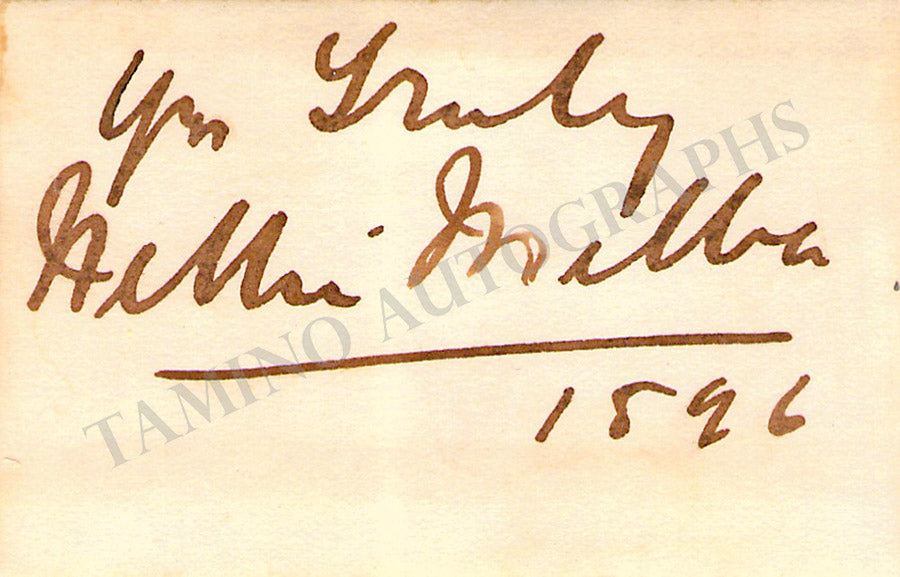 Yrs Truly
Nellie Melba
1896
TAMINO AUTOGRAPHS